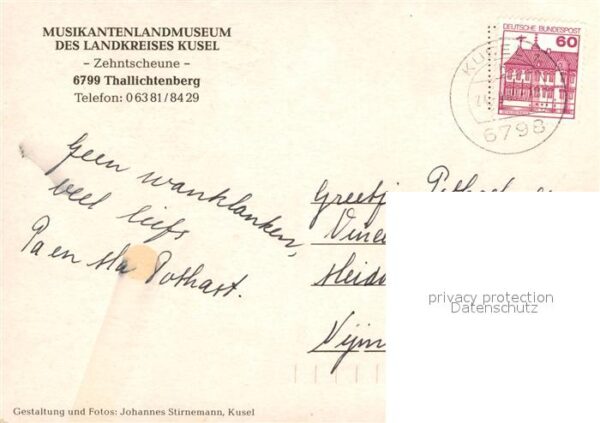 MUSIKANTENLANDMUSEUM
DES LANDKREISES KUSEL
– Zehntscheune –
6799 Thallichtenberg
Telefon: 0 63 81 / 84 29
DEUTSCHE BUNDESPOST
60
KUSEL
6798
Geen wanklanken,
veel liefs
Pa en Ma Pothast.
Greetje Pothast
privacy protection
Datenschutz
Gestaltung und Fotos: Johannes Stirnemann, Kusel